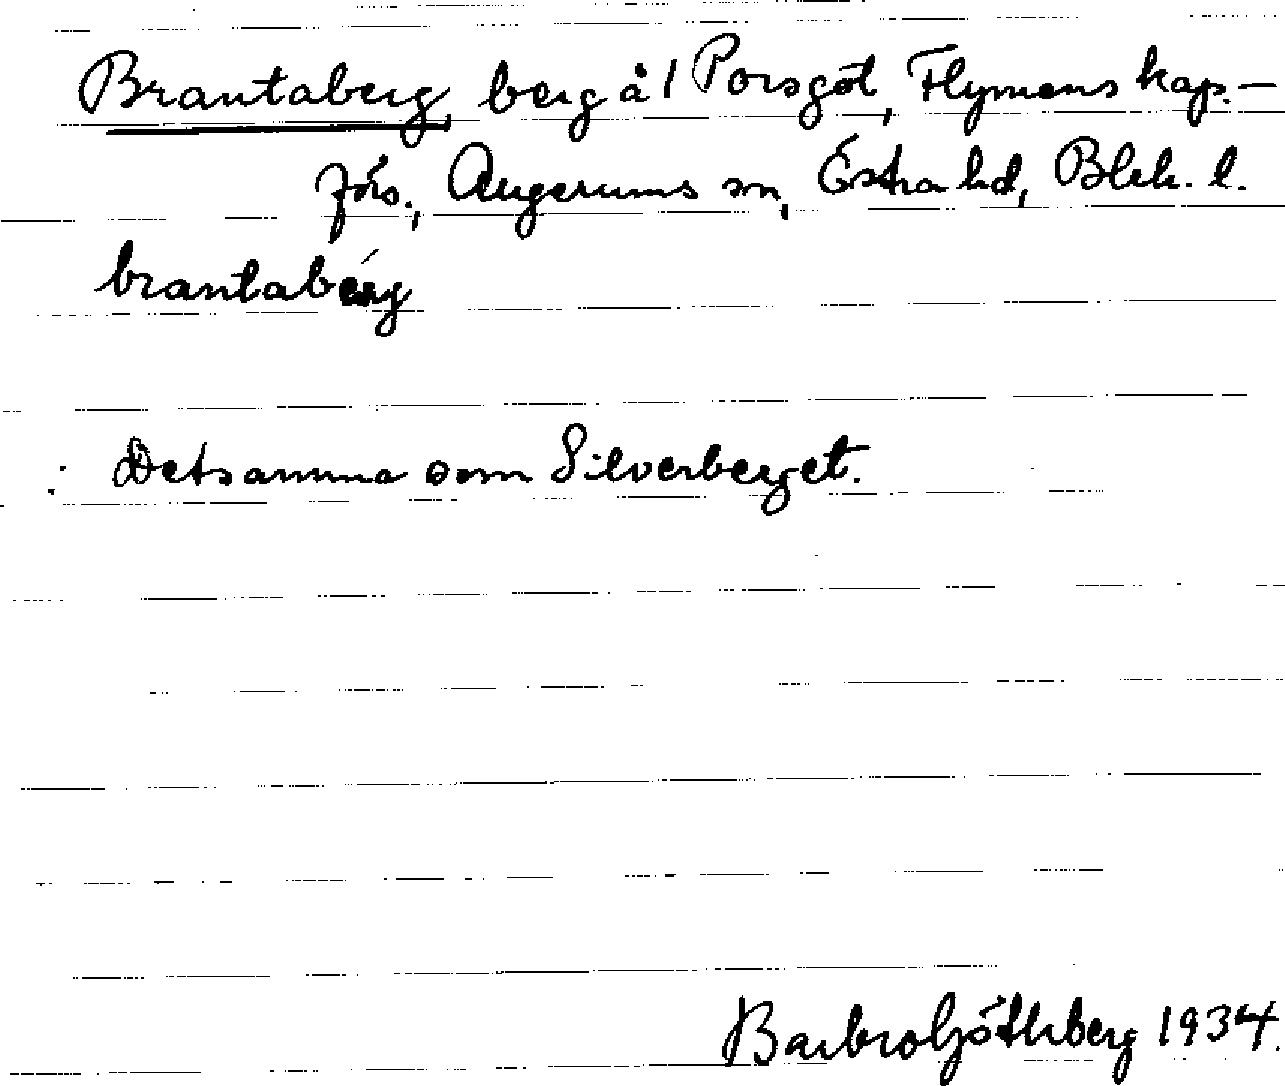 Brantaberg, berg å 1 Porsgöl, Flymens kap.-
förs., Augerums sn, Östra hd, Blek. l.
brantabérg
Detsamma som Silverberget.
Barbro Göthberg 1934.